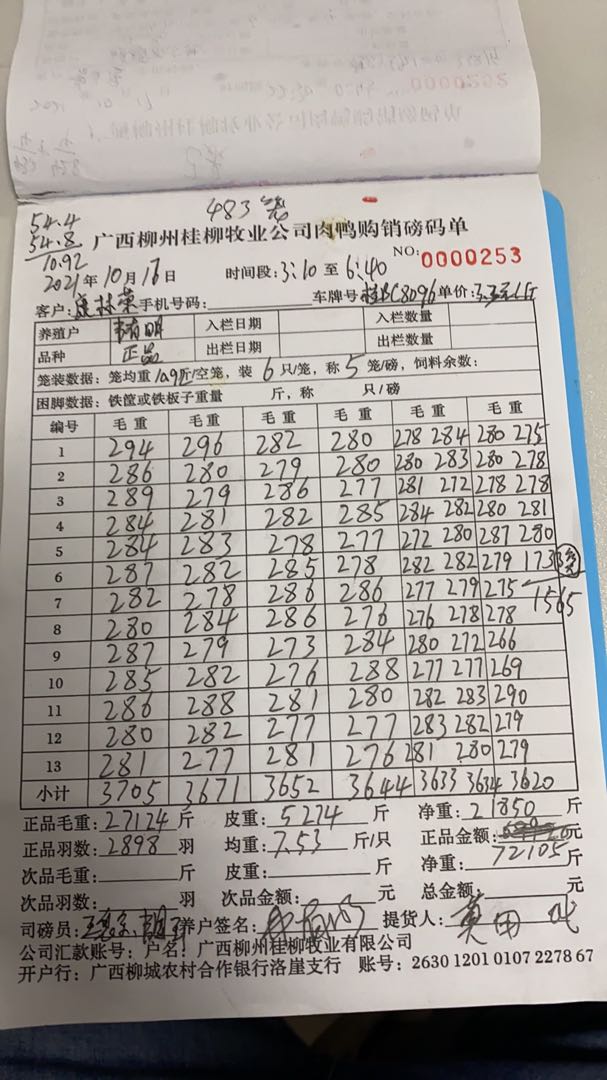 0000202
483笼
54.4
54.8
10.92
广西柳州桂柳牧业公司肉鸭购销磅码单
NO: 0000253
2021年10月16日 时间段: 3:10 至 6:40
客户: 荣 手机号码: 车牌号 桂BC8096 单价: 3.3元/斤
养殖户 明 入栏日期 入栏数量
品种 正品 出栏日期 出栏数量
笼装数据: 笼均重10.9斤/空笼, 装 6 只/笼, 称 5 笼/磅, 饲料余数:
困脚数据: 铁筐或铁板子重量 斤, 称 只/磅
编号 毛重 毛重 毛重 毛重 毛重 毛重
1 294 296 282 280 278 284 280 275
2 286 280 279 280 280 283 280 278
3 289 279 286 277 281 272 278 278
4 284 281 282 285 284 282 280 281
5 284 283 278 277 272 280 287 280
6 287 282 285 278 282 282 279 173 3笼
7 282 278 286 286 277 279 275 1565
8 280 284 286 276 276 278 278
9 287 279 273 284 280 272 266
10 285 282 276 288 277 277 269
11 286 288 281 280 282 283 290
12 280 282 277 277 283 282 279
13 281 277 281 276 281 280 279
小计 3705 3671 3652 3644 3633 3634 3620
正品毛重: 27124 斤 皮重: 5274 斤 净重: 21850 斤
正品羽数: 2898 羽 均重: 7.53 斤/只 正品金额: 72105 元
次品毛重: 斤 皮重: 斤 净重: 斤
次品羽数: 羽 次品金额: 元 总金额: 元
司磅员: 养户签名: 提货人: 黄
公司汇款账号: 户名: 广西柳州桂柳牧业有限公司
开户行: 广西柳城农村合作银行洛崖支行 账号: 2630 1201 0107 2278 67